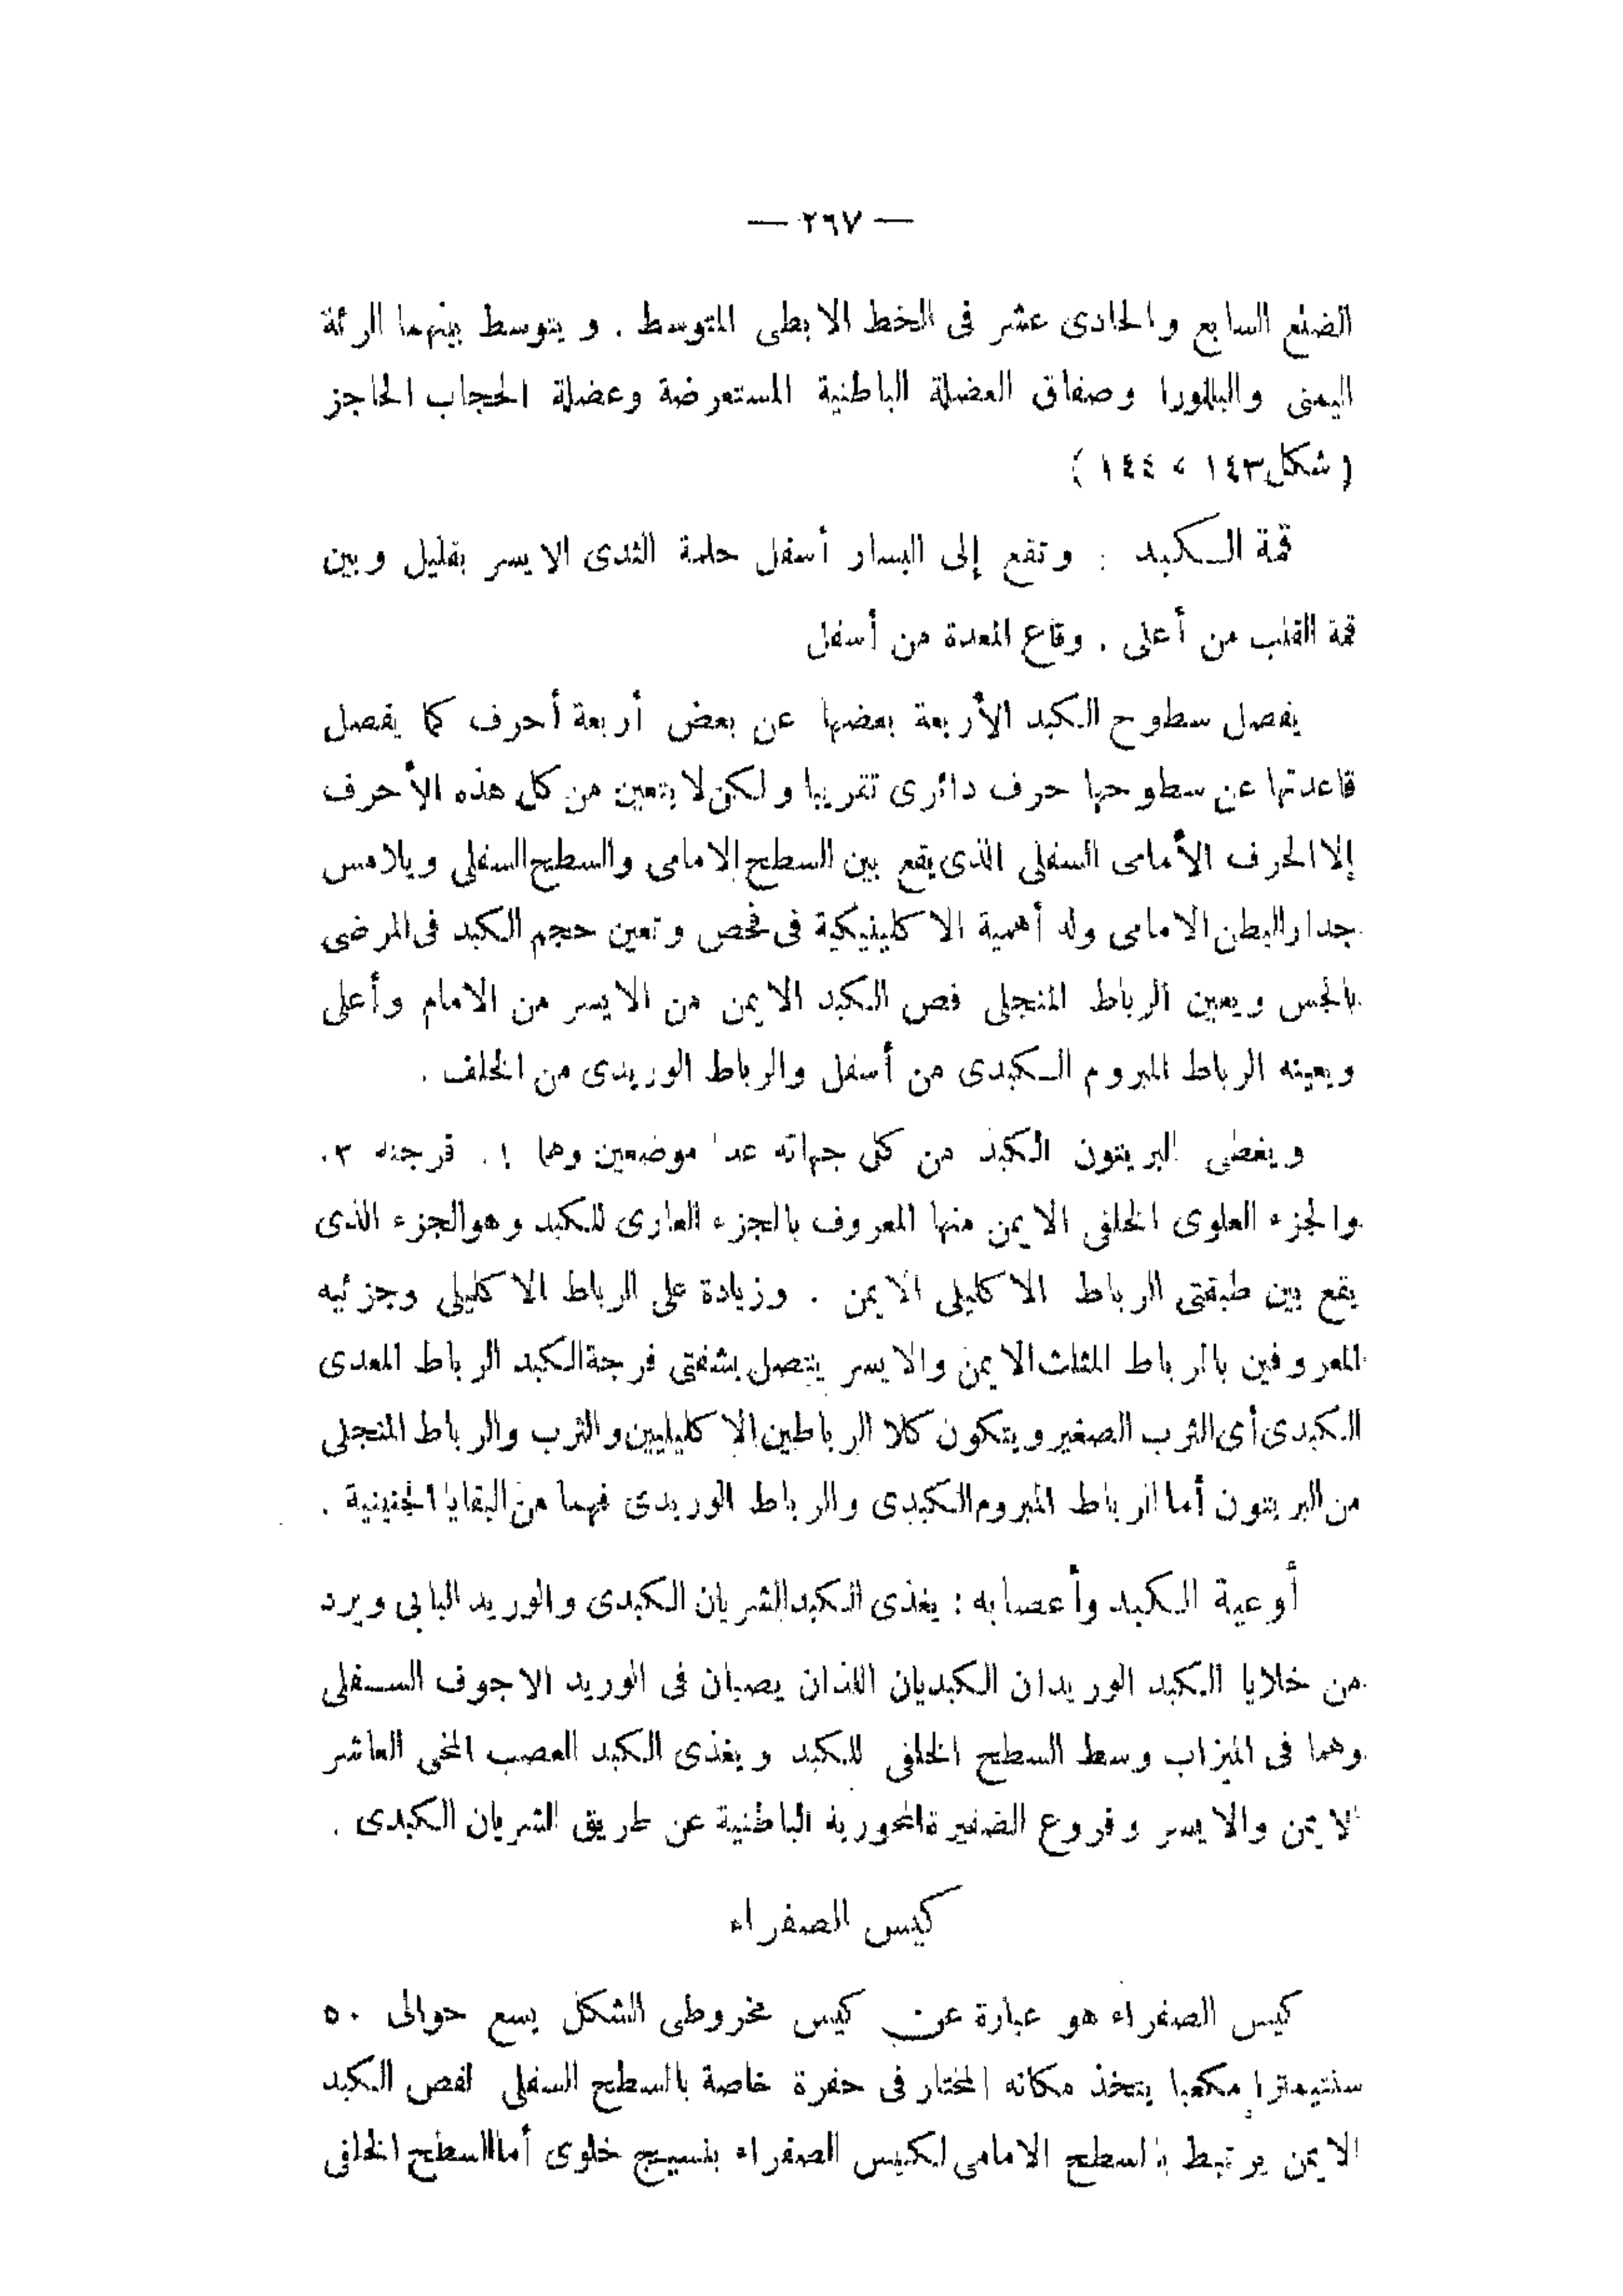 — ٢٦٧ —
الضلع السابع والحادى عشر فى الخط الابطى المتوسط . ويتوسط بينهما الرئة
اليمنى والبللورا وصفاق العضلة الباطنية المستعرضة وعضلة الحجاب الحاجز
( شكل ١٤٣ ، ١٤٤ )
قمة الكبد : وتقع إلى اليسار أسفل حلمة الثدى الايسر بقليل وبين
قمة القلب من أعلى . وقاع المعدة من أسفل
يفصل سطوح الكبد الأربعة بعضها عن بعض أربعة أحرف كما يفصل
قاعدتها عن سطوحها حرف دائرى تقريبا ولكن لا يتعين من كل هذه الأحرف
إلا الحرف الأمامى السفلى الذى يقع بين السطح الامامى والسطح السفلى ويلامس
جدار البطن الامامى وله أهمية الاكلينيكية فى فحص وتعين حجم الكبد فى المرضى
بالجس ويعين الرباط المنجلى فص الكبد الايمن من الايسر من الامام وأعلى
ويعينه الرباط المبروم الكبدى من أسفل والرباط الوريدى من الخلف .
ويغطى البريتون الكبد من كل جهاته عدا موضعين وهما ١. فرجته ٢.
والجزء العلوى الخلفى الايمن منها المعروف بالجزء العارى للكبد وهو الجزء الذى
يقع بين طبقتى الرباط الاكليلى الايمن . وزيادة على الرباط الاكليلى وجزئيه
المعروفين بالرباط المثلث الايمن والايسر يتصل بشفتى فرجة الكبد الرباط المعدى
الكبدى أى الثرب الصغير ويتكون كلا الرباطين الاكليليين والثرب والرباط المنجلى
من البريتون أما الرباط المبروم الكبدى والرباط الوريدى فهما من البقايا الجنينية .
أوعية الكبد وأعصابه : يغذى الكبد الشريان الكبدى والوريد البابى ويرد
من خلايا الكبد الوريدان الكبديان اللذان يصبان فى الوريد الاجوف السفلى
وهما فى الميزاب وسط السطح الخلفى للكبد ويغذى الكبد العصب المخى العاشر
الايمن والايسر وفروع الضفيرة المحورية الباطنية عن طريق الشريان الكبدى .
كيس الصفراء
كيس الصفراء هو عبارة عن كيس مخروطى الشكل يسع حوالى ٥٠
سنتيمترا مكعبا يتخذ مكانه المختار فى حفرة خاصة بالسطح السفلى لفص الكبد
الايمن يرتبط بالسطح الامامى لكيس الصفراء بنسيج خلوى أما السطح الخلفى